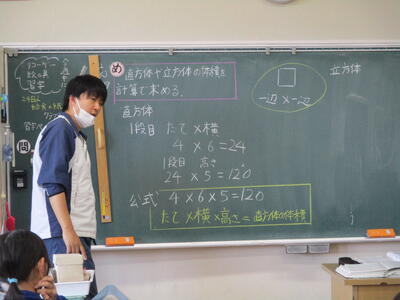 リコーダー
絵の具
習字
め
直方体や立方体の体積を
計算で求める。
直方体
1段目 たて×横
4×6=24
1段目 高さ
24×5=120
公式 4×6×5=120
たて×横×高さ=直方体の体積
問
立方体
一辺×一辺